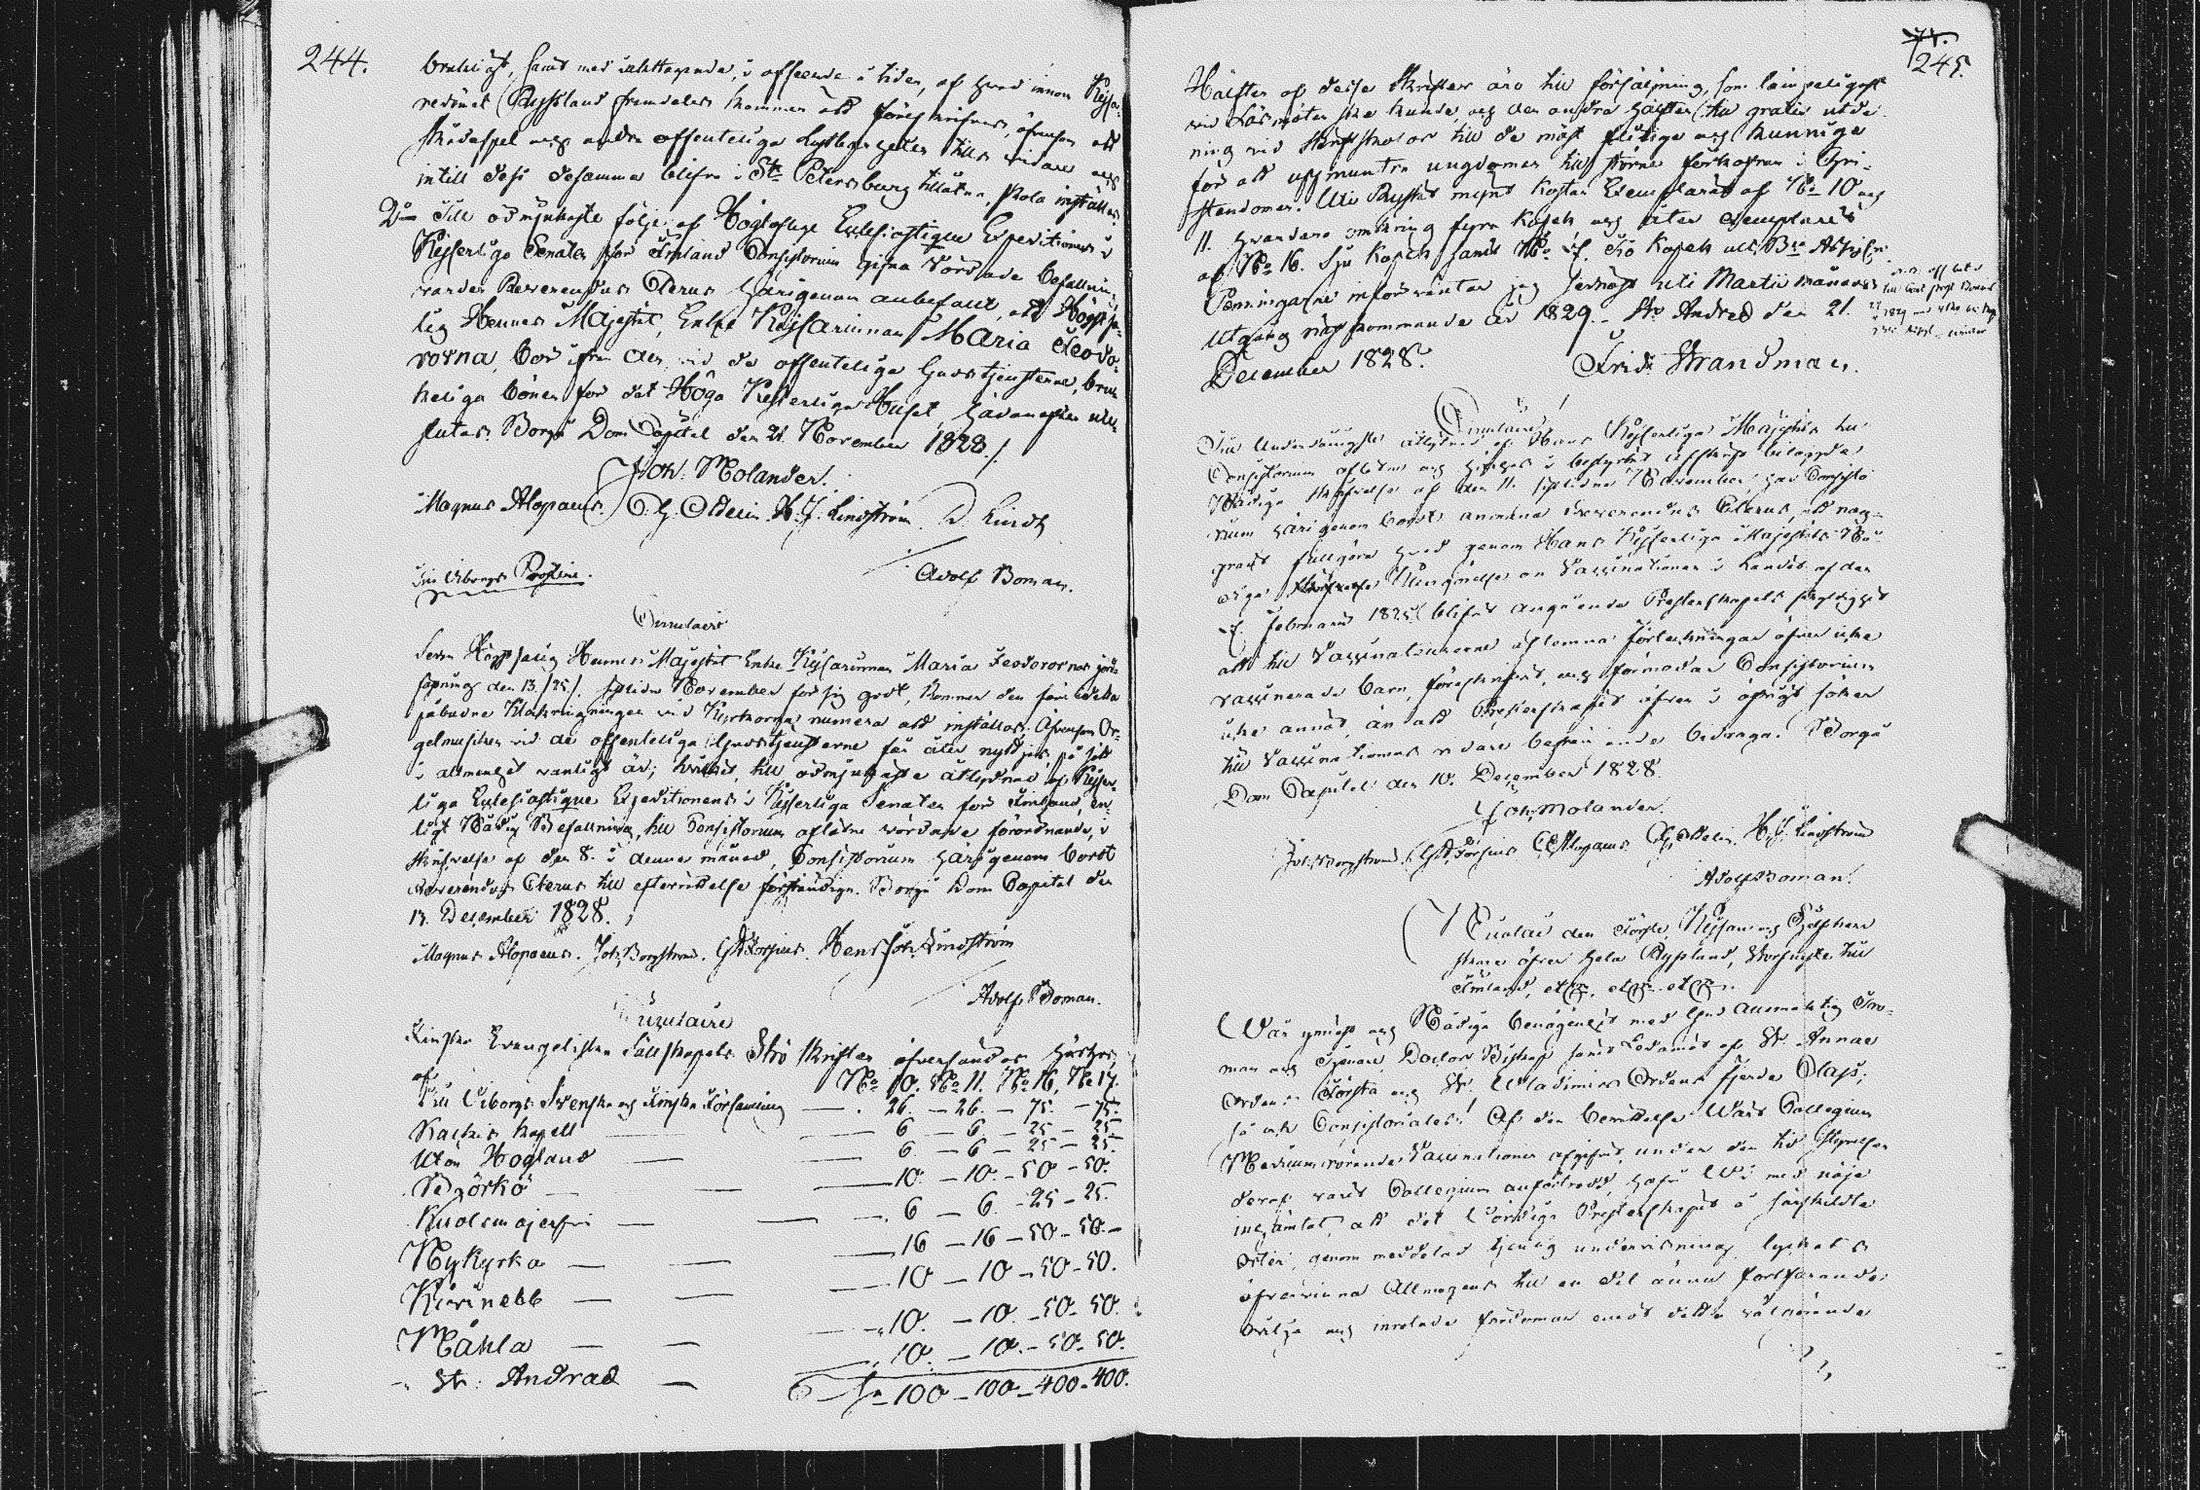 244.
brukligt, samt med iakttagande, i afseende å tiden, af hvad innom Kejsa-
redömet Ryssland framdeles kommer att föreskrifvas, äfvensom att
skådespel och andra offenteliga lustbarheter tills vidare och
intill dess desamma blifva i St. Petersburg tillåtna, skola inställas.
2:o Till ödmjukaste följe af Höglofliga Ecklesiastique Expeditionens i
Kejserliga Senaten för Finland Consistorium gifna vördade befallning
varder Reverendus Clerus härigenom anbefalt, att Högstsa-
lig Hennes Majestät, Enke Kejsarinnan Maria Feodo-
rovna, bör ifrån den vid de offenteliga Gudstjensterne, bruk-
keliga bönen för det Höga Kejserliga Huset, hädanefter ute-
slutas. Borgå Dom Capitel den 21. November 1828./.
Joh: Molander.
Magnus Alopaeus. C. G. Ottelin. H. J. Lindström. Lindh
Adolf Boman.
Till Viborgs Prosteri.
Circulaire
Sedan Högstsalig Hennes Majestät Enke Kejsarinnan Maria Feodorovnas jord-
fästning den 13./25./. sistledne November för sig gådt, kommer den före detta
påbudne Klockringningen vid Kyrkorna numera att inställas; Äfvensom Or-
gelmusiken vid de offenteliga Gudstjensterne får åter nyttjas på sätt
i allmenhet vanligt är; hvilket, till ödmjukaste åtlydnad af Kejser-
liga Ecklesiastique Expeditionens i Kejserliga Senaten för Finland, en-
ligt Nådig Befallning, till Consistorium aflåtne vördade förordnande, i
skrifvelse af den 8. i denne månad, Consistorium härigenom bordt
Reverendus Clerus till efterrättelse förständiga. Borgå Dom Capitel den
17. December 1828.
Magnus Alopaeus. Joh. Borgström. Henr. Joh. Lindström
Adolf Boman.
Circulaire
Finska Evangeliska Sällskapets Strö skrifter öfversändas härhos
af No 10. No 11. No 16, No 17.
Till Viborgs Svenska och Finska Församling — 26. — 26. — 75. — 75.
Kapell — 6 — 6 — 25 — 25
Utön Hogland — 6 — 6 — 25 — 25.
— 10. — 10. — 50 — 50.
Kuolemajärvi — 6 — 6. — 25 — 25.
Nykyrka — 16 — 16 — 50 — 50 —
Kivinebb — 10 — 10 — 50 — 50.
Måhla — 10. — 10. — 50. 50.
St: Andrad — 10. — 10. — 50. 50.
S:a 100 — 100 — 400 — 400.
245.
Hälften af desse Skrifter äro till försäljning, som lämpeligast
vid Läsmöten ske kunde, och den andra hälften till gratis utdel-
ning vid Skriftskolor till de mäst flitige och kunnige
för att uppmuntra ungdomen till större förkofran i Chri-
stendomen. Uti Ryskt mynt kostar Exemplaret af No 10 och
11. hvardera omkring fyra Kopek och åter exemplaret
af No 16. Sju Kopek samt No 17. Tio Kopek
Penningarne inför väntar jag sednast uti Martii månads
utgång nästkommande år 1829. St Andreé den 21.
December 1828. Frid: Strandman.
Circulaire
Till Underdånigste åtlydnad af Hans Kejserliga Majestäts till
Consistorium aflåtne och härhos i bestyrkt afskrift bilagde
Nådiga skrifvelse af den 11. sistledne November, har Consisto-
rium härigenom bordt anmana Reverendus Clerus, att nog-
grant fullgöra hvad genom Hans Kejserliga Majestäts Nå-
diga Kungörelse om Vaccinationen i Landet af den
Februarii 1825. blifvit angående Presterskapets skyldighet
att till Vaccinateurerne aflemna förteckningar öfver icke
vaccinerade barn, föreskrifvit, och förmodar Consistorium
icke annat, än att Presterskapet äfven i öfrigt söker
till Vaccinationens vidare bedrifvande bidraga. Borgå
Dom Capitel den 10. December 1828.
Joh. Molander.
Joh: Borgström. Alopaeus. C. G. Ottelin. H. J. Lindström
Adolf Boman.
Nicolai den Förste, Kejsare och Sjelfherr-
skare öfver hela Ryssland, Storfurste till
Finland, etc. etc. etc.
Wår ynnest och Nådiga benägenhet med Gud Allsmäktig Tro-
man och Tjenare, Doctor Biskop samt Ledamot af St. Annae
Ordens Första och St. Wladimirs Ordens fjerde Class;
så ock Consistoriales! Af den berättelse Wårt Collegium
Medicum rörande Vaccinationen afgifvit, under den tid styrelsen
deraf varit Collegium anförtrodd, hafve Wi med nöje
inhämtat, att det Vördiga Presterskapet å särskildte
orter, genom meddelad tjenlig undervisning, lyckats
öfvervinna Allmogens till en del ännu fortfarande
ovilja och inrotade fördomar emot detta välgörande